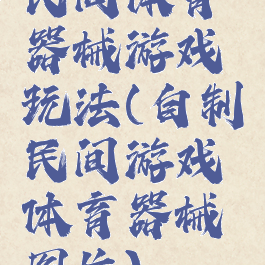 民间体育
器械游戏
玩法(自制
民间游戏
体育器械
图片)